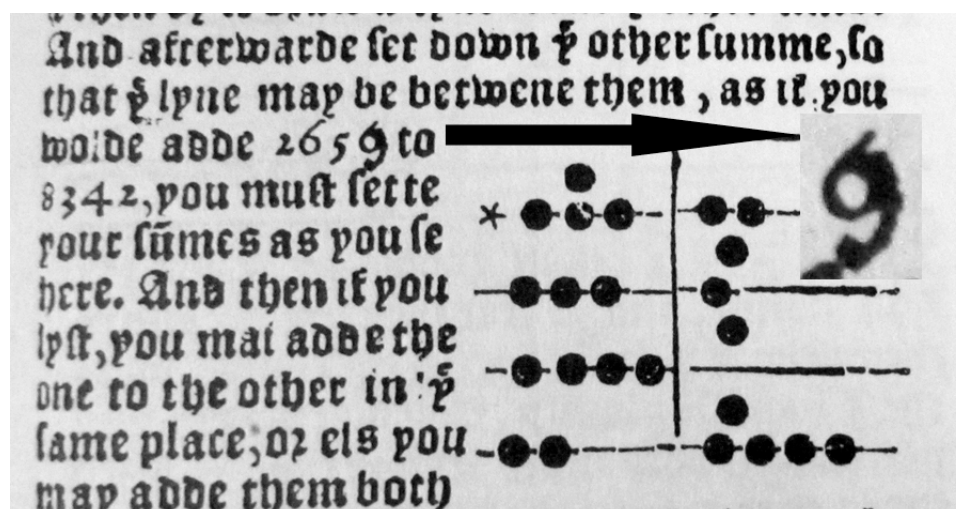 And afterwarde ſet down yͤ other ſumme, ſo
that yͤ lyne may be betwene them, as if you
wolde adde 2659 to
9
8342, you muſt ſette
your ſūmes as you ſe
here. And then if you
lyſt, you mai adde the
one to the other in yͤ
ſame place, oꝛ els you
may adde them both